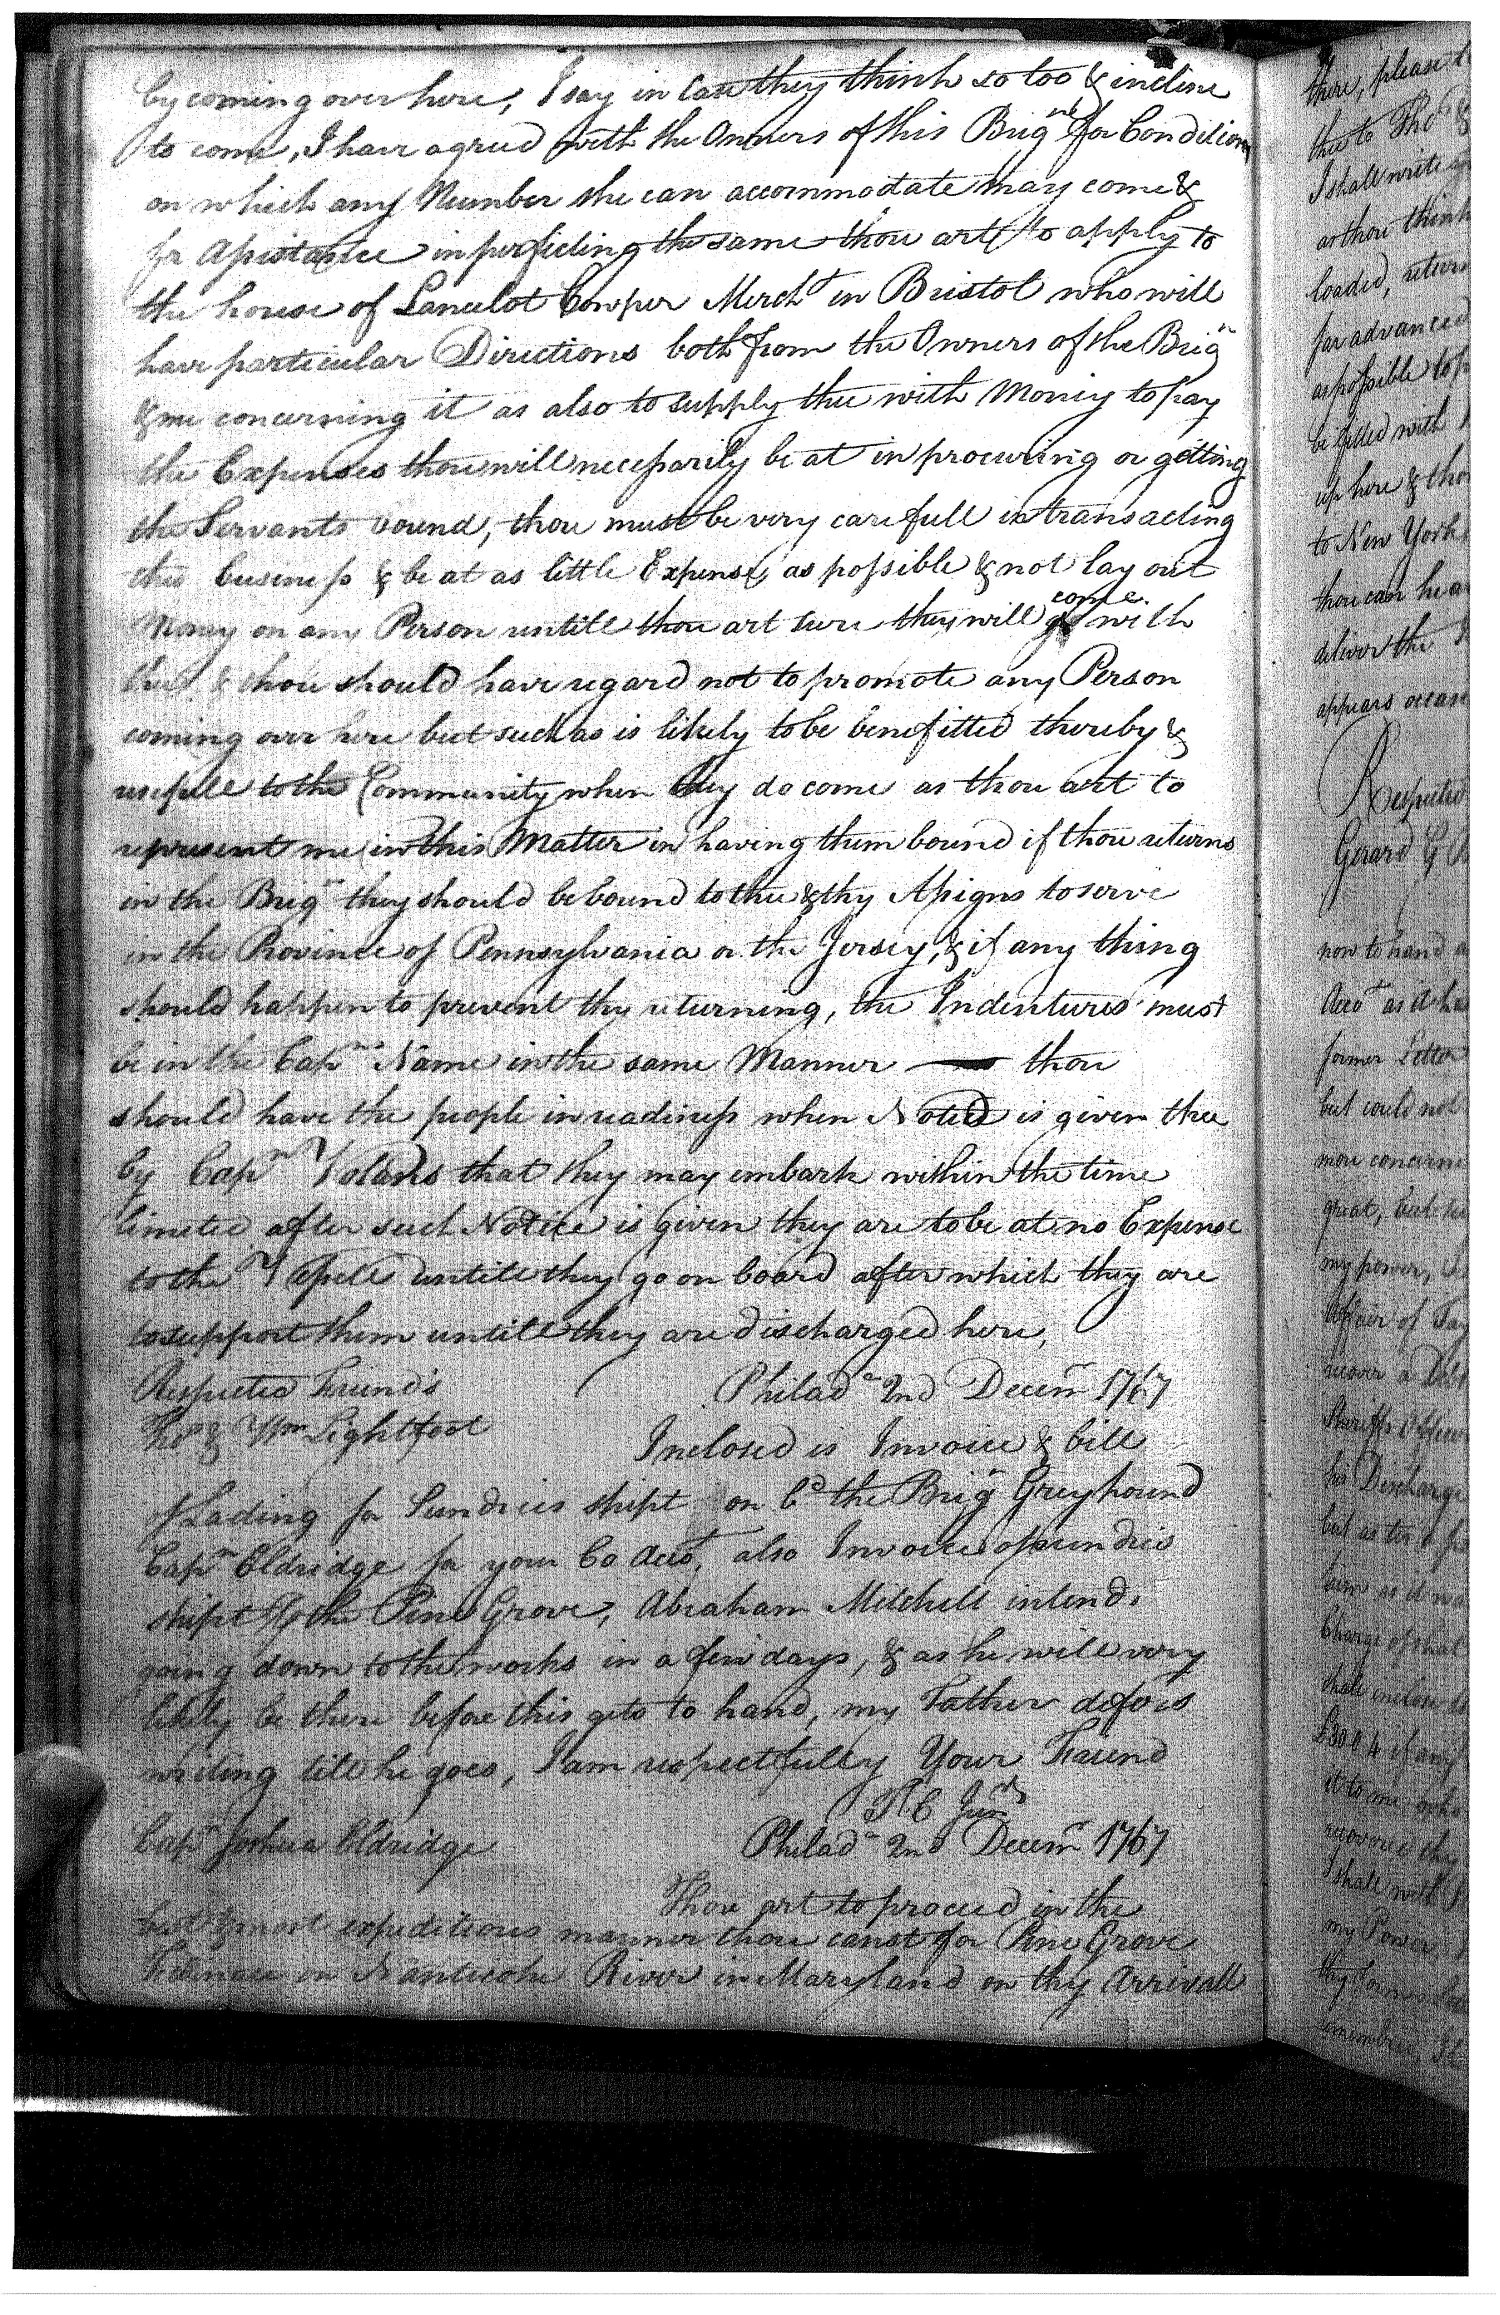 by coming over here, I say in Case they think so too & incline
to come, I have agreed with the Owners of this Brigne for Conditions
on which any Number she can accommodate may come &
for Assistance in perfecting the same thou art to apply to
the house of Lancelot Cowper Mercht in Bristol who will
have particular Directions both from the Owners of the Brign
& me concerning it as also to supply thee with Money to pay
the Expenses thou will necessarily be at in procuring or getting
the Servants bound, thou must be very carefull in transacting
this business & be at as little Expense as possible & not lay out
Money on any Person untill thou art sure they will come with
thee & thou should have regard not to promote any Person
coming over here but such as is likely to be benefitted thereby &
usefull to the Community when they do come as thou art to
represent me in this Matter in having them bound if thou returns
in the Brign they should be bound to thee & thy Assigns to serve
in the Province of Pennsylvania or the Jersey, & if any thing
should happen to prevent thy returning, the Indentures must
be in the Capns Name in the same Manner — thou
should have the people in readiness when Notice is given thee
by Capn Volans that they may embark within the time
limited after such Notice is given they are to be at no Expense
to the Vessell untill they go on board after which they are
to support them untill they are discharged here,
Respected Friends Philada 2nd Decemr 1767
Thos & Wm Lightfoot
Inclosed is Invoice & bill
of Lading for Sundries shipt on bd the Brign Greyhound
Capn Eldridge for your Co Acct, also Invoice of sundries
shipt to the Pine Grove, Abraham Mitchell intends
going down to the works in a few days, & as he will very
likely be there before this gets to hand, my Father defers
writing till he goes, I am respectfully Your Friend
TC Junr
Capn Joshua Eldridge Philada 2nd Decemr 1767
Thou art to proceed in the
best & most expeditious manner thou canst for Pine Grove
Furnace on Nanticoke River in Maryland on thy Arrivall
there, please
thee to Thos &
I shall write
as thou think
loaded, return
far advanced
as possible to
be filled with
up here & thou
to New York
thou can hear
deliver the
appears
Respected
Gerard G
now to hand
Acct as it has
former Letter
but could not
more concern
great, but
my power,
Affair of
recover a Debt
Sheriff
his Discharge
but as
Charge
it to me
I shall
my Power